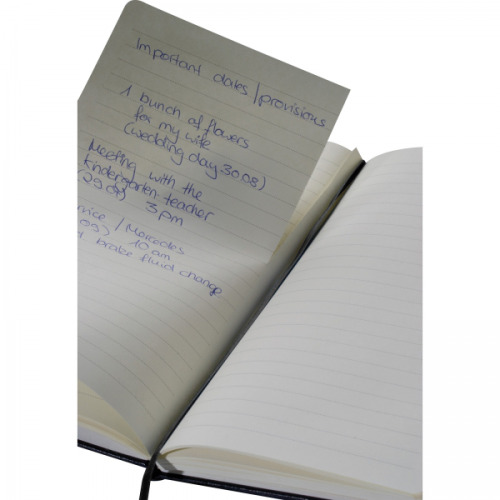 Important dates / provisions
1 bunch of flowers
for my wife
(wedding day 30.08)
Meeting with the
kindergarten teacher
(29.09) 3 pm
/ Mercedes
10 am
brake fluid change